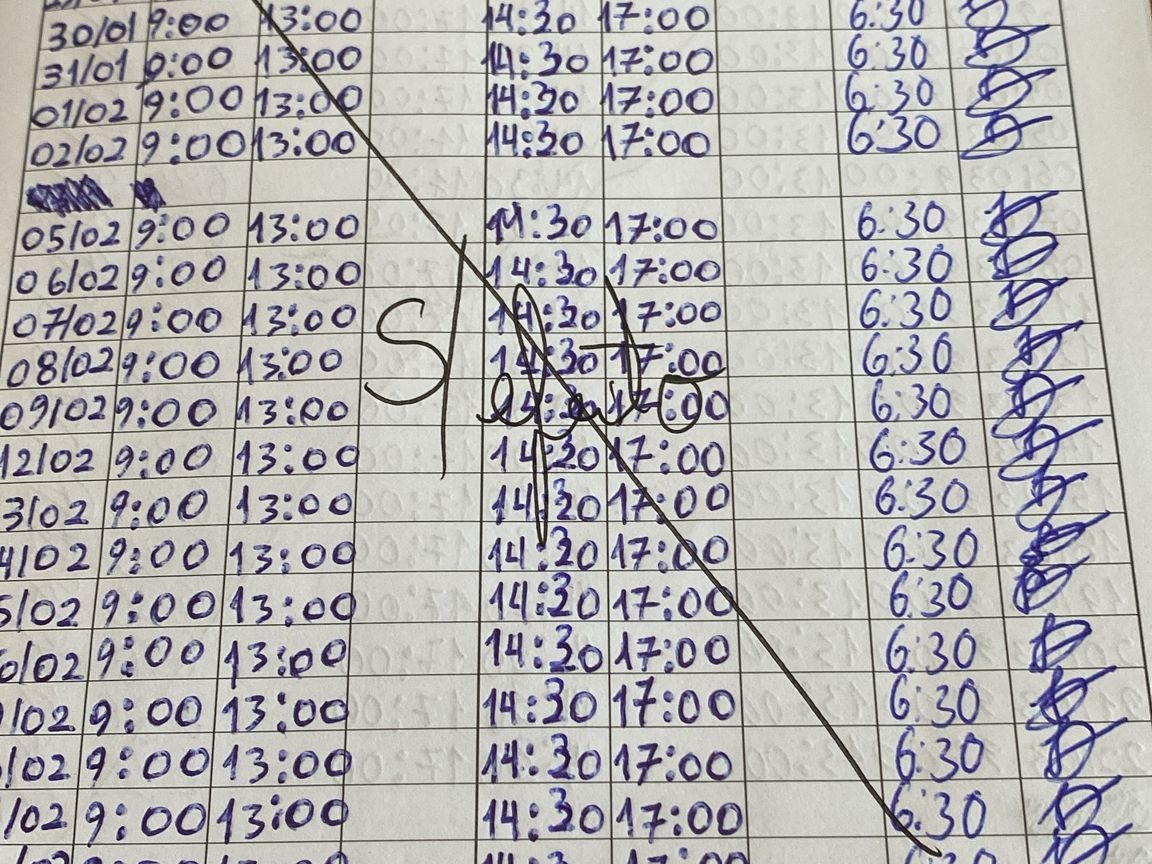 30/01 9:00 13:00 14:30 17:00 6:30
31/01 9:00 13:00 14:30 17:00 6:30
01/02 9:00 13:00 14:30 17:00 6:30
02/02 9:00 13:00 14:30 17:00 6:30
05/02 9:00 13:00 14:30 17:00 6:30
06/02 9:00 13:00 14:30 17:00 6:30
07/02 9:00 13:00 14:30 17:00 6:30
08/02 9:00 13:00 14:30 17:00 6:30
09/02 9:00 13:00 14:30 17:00 6:30
12/02 9:00 13:00 14:30 17:00 6:30
3/02 9:00 13:00 14:30 17:00 6:30
4/02 9:00 13:00 14:30 17:00 6:30
5/02 9:00 13:00 14:30 17:00 6:30
/02 9:00 13:00 14:30 17:00 6:30
/02 9:00 13:00 14:30 17:00 6:30
/02 9:00 13:00 14:30 17:00 6:30
/02 9:00 13:00 14:30 17:00 6:30